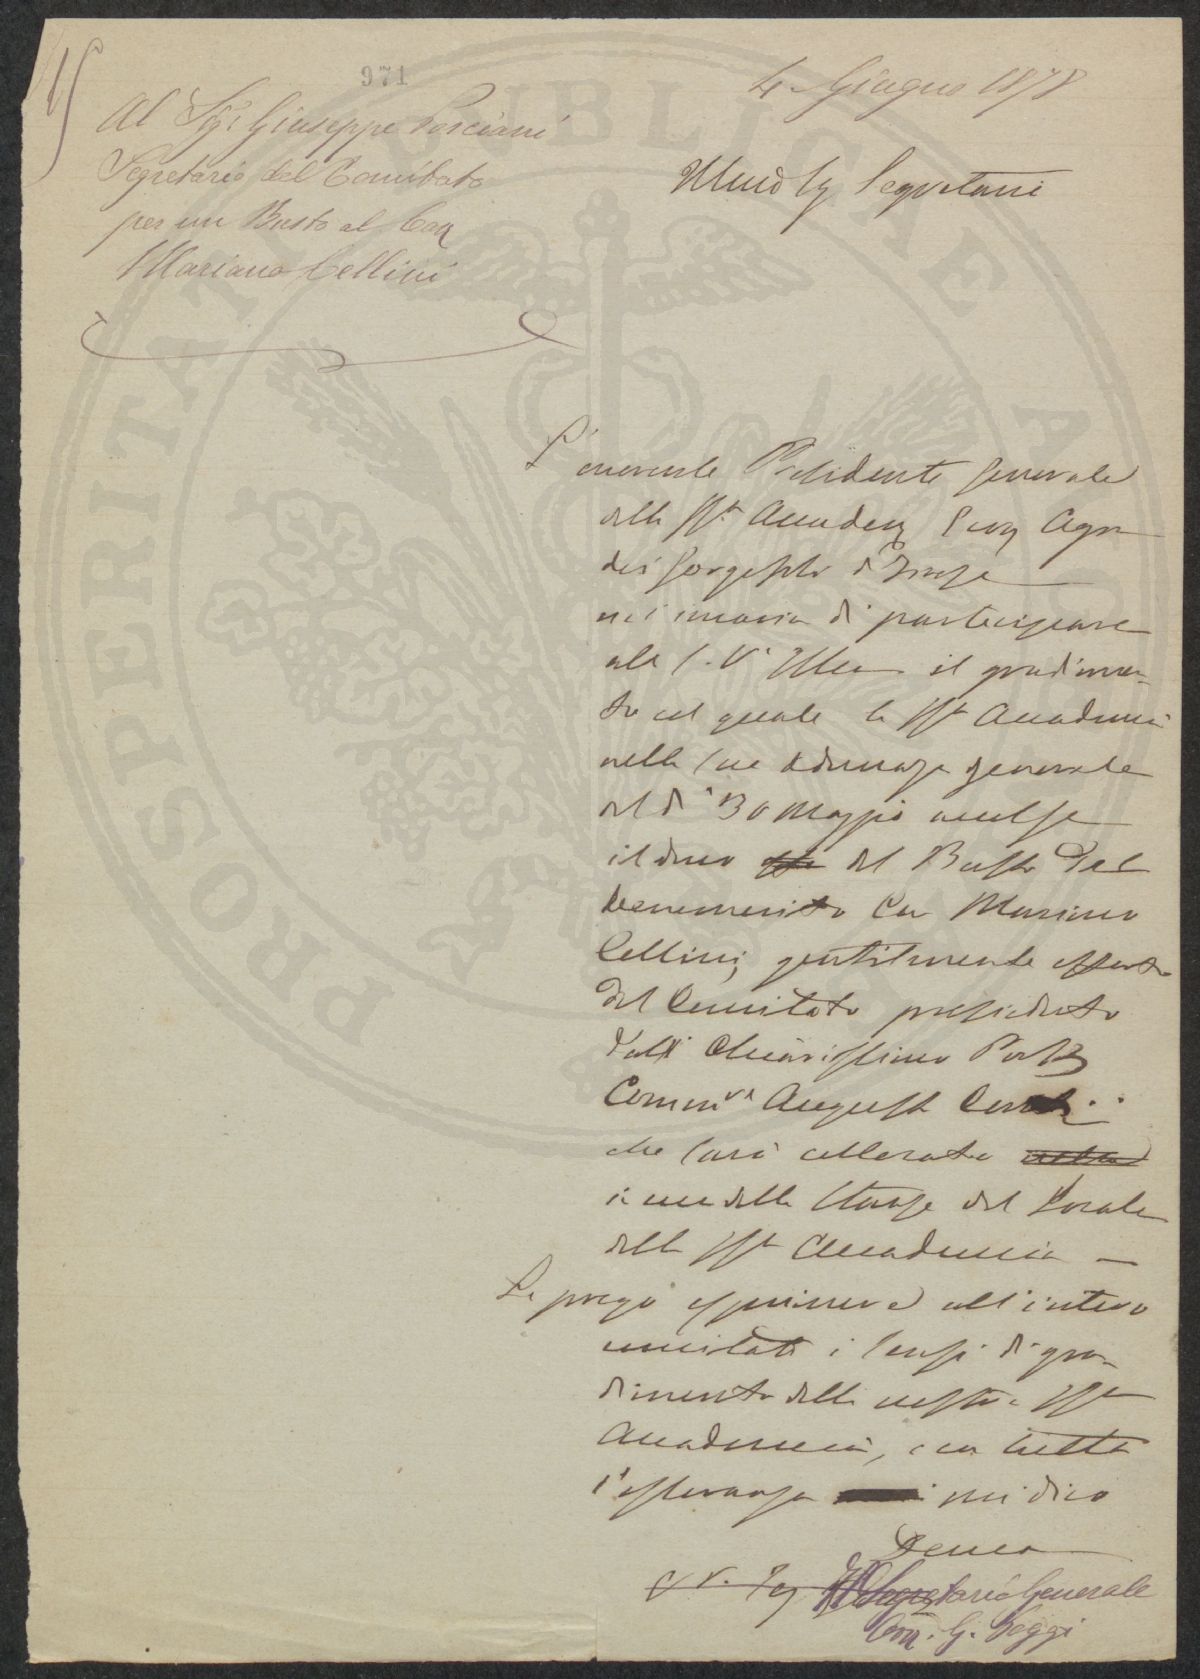 971
4 Giugno 1878
Al Sig. Giuseppe
Segretario del Comitato
per un Busto al Cav
Mariano Cellini
Illmo Sig Segretario
L'onorevole Presidente Generale
della Rle Accadem Econ Agr
dei Georgofili di Firenze
m'incarica di partecipare
alla S. V. Illma il gradimen-
to col quale la Rle Accademia
nella sua Adunanza generale
del dì 30 Maggio accolse
il dono del Busto del
benemerito Cav Mariano
Cellini, gentilmente offerto
dal Comitato presieduto
dall Chiarissimo
Commre Augusto Conti
che sarà collocato nella
in una delle stanze del Locale
della Rle Accademia —
La prego esprimere all'intero
comitato i sensi di gra-
dimento della nostra Rle
Accademia, con tutta
l'osservanza mi dico
Devmo
Il Segretario Generale
G.
PROSPERITATI PUBLICAE